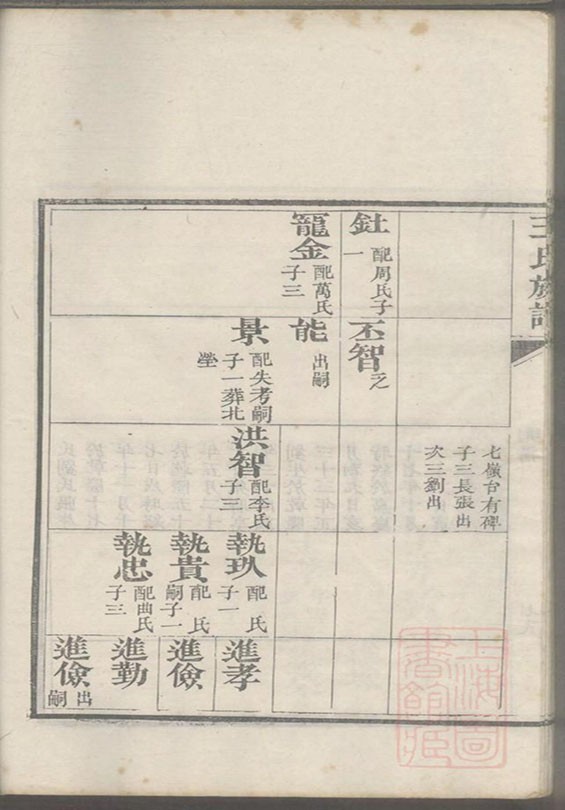 王氏族譜
七嶺台有碑
子三長張出
次三劉出
釷
配周氏子
一
寵金
配萬氏
子三
丕智
之
能
出嗣
景
配失考嗣
子一葬北
塋
洪智
配李氏
子三
執玖
配 氏
子一
執貴
配 氏
嗣子一
執忠
配曲氏
子三
進孝
進儉
進勤
進儉
出
嗣
上海圖書館藏